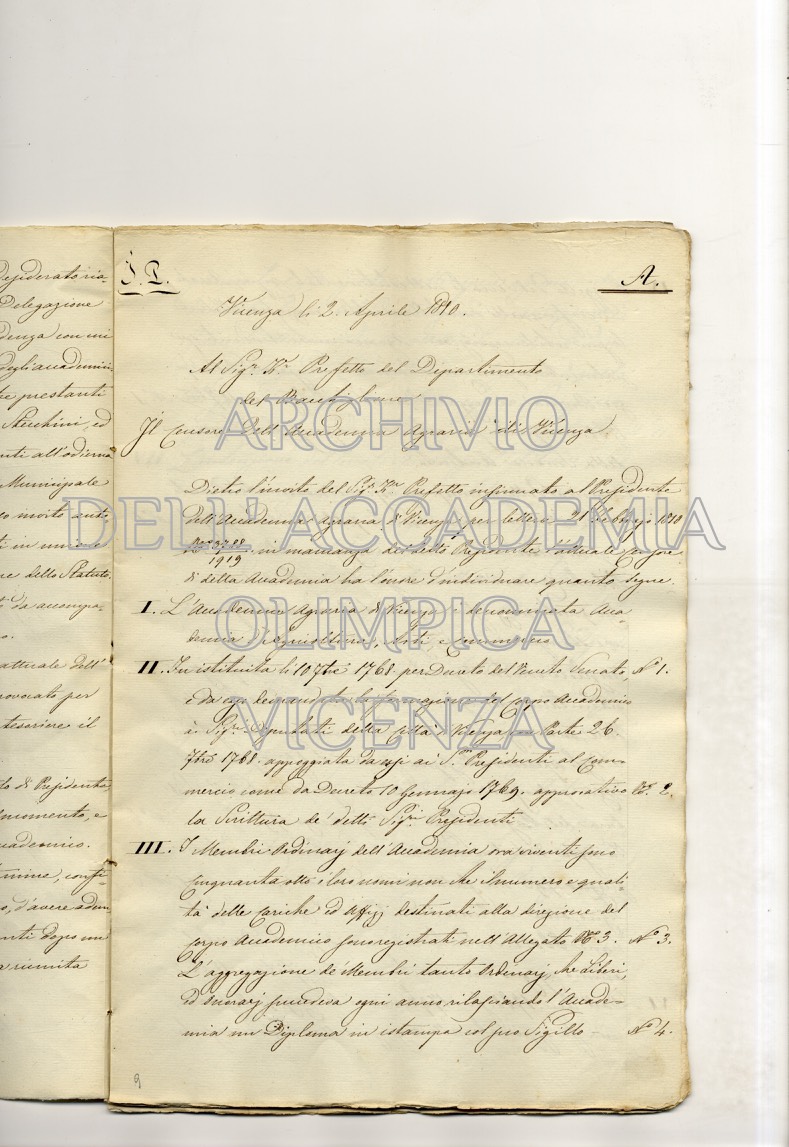 Desiderato ria-
Delegazione
denza con mi
degli accademi-
te prestanti
Stecchini, ed
nti all'odierna
Municipale
o molto anti
ti in unione
ne dello Statuto
to da accompa-
o.
attuale dell'
rovocato per
trascrive il
to di Presidenta
momento, e
cademico.
rmine, confi-
o, d'avere adem-
nti dopo un
a riunita
I. P.
A.
Vicenza li 2. Aprile 1810.
Al Sig.r K.r Prefetto del Dipartimento
del Bacchiglione
Il Censore dell'Accademia Agraria di Vicenza.
Dietro l'invito del Sig.r K.r Prefetto insinuato al Presidente
dell'Accademia Agraria di Vicenza per lettera 21 Febbrajo 1810
N.o 3788/1919 in mancanza del detto Presidente l'attuale Censore
di detta Accademia ha l'onore d'individuare quanto segue.
I. L'Accademia Agraria di Vicenza è denominata Acca-
demia d'Agricoltura, Arti e Commercio
II. Fu istituita li 10 7bre 1768. per Decreto del Veneto Senato, N.o 1.
e da esso demandata la formazione del Corpo Accademico
a Sig.ri Deputati della Città di Vicenza con Parte 26.
7bre 1768. appoggiata da essi ai S.ri Presidenti al Com-
mercio come da Decreto 10 Gennajo 1769. approvativo N.o 2.
la Scrittura de' detti Sig.ri Presidenti
III. I Membri Ordinarj dell'Accademia ora viventi sono
cinquanta otto i loro nomi non che il numero e quali-
tà delle cariche ed Affizj destinati alla direzione del
corpo Accademico sono registrati nell'Allegato N.o 3. N.o 3.
L'aggregazione de' Membri tanto Ordinarj, che Liberi,
ed Onorarj succedeva ogni anno rilasciando l'Accade-
mia un Diploma in istampa col suo Sigillo N.o 4.
9
ARCHIVIO
DELL'ACCADEMIA
OLIMPICA
VICENZA